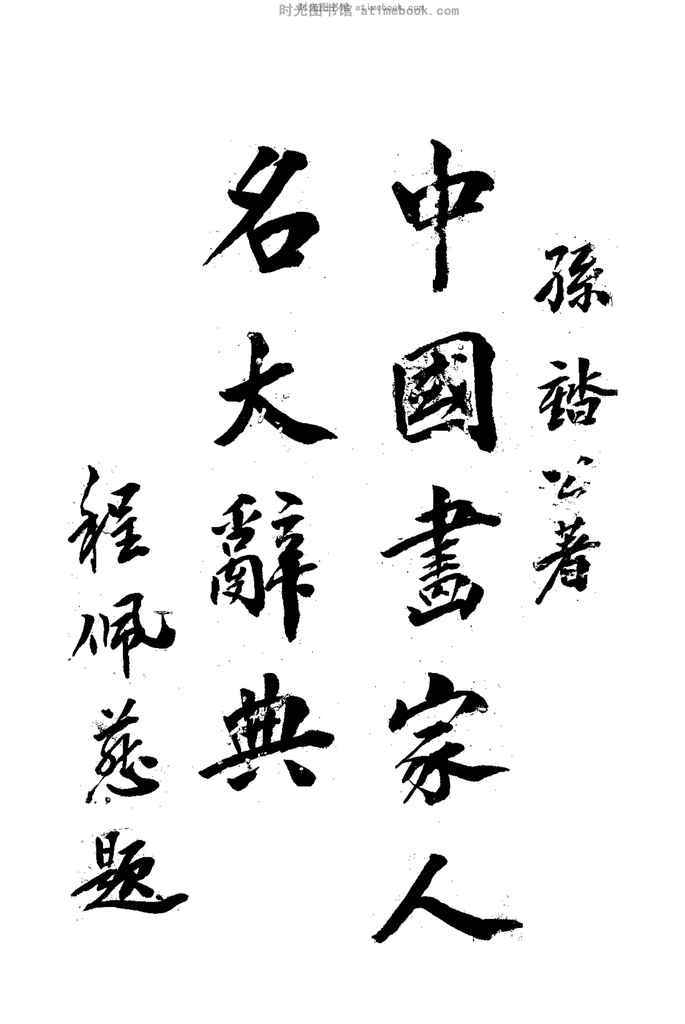 时光图书馆 atimebook.com
孫䕶公著
中國畫家人
名大辭典
程佩慈題